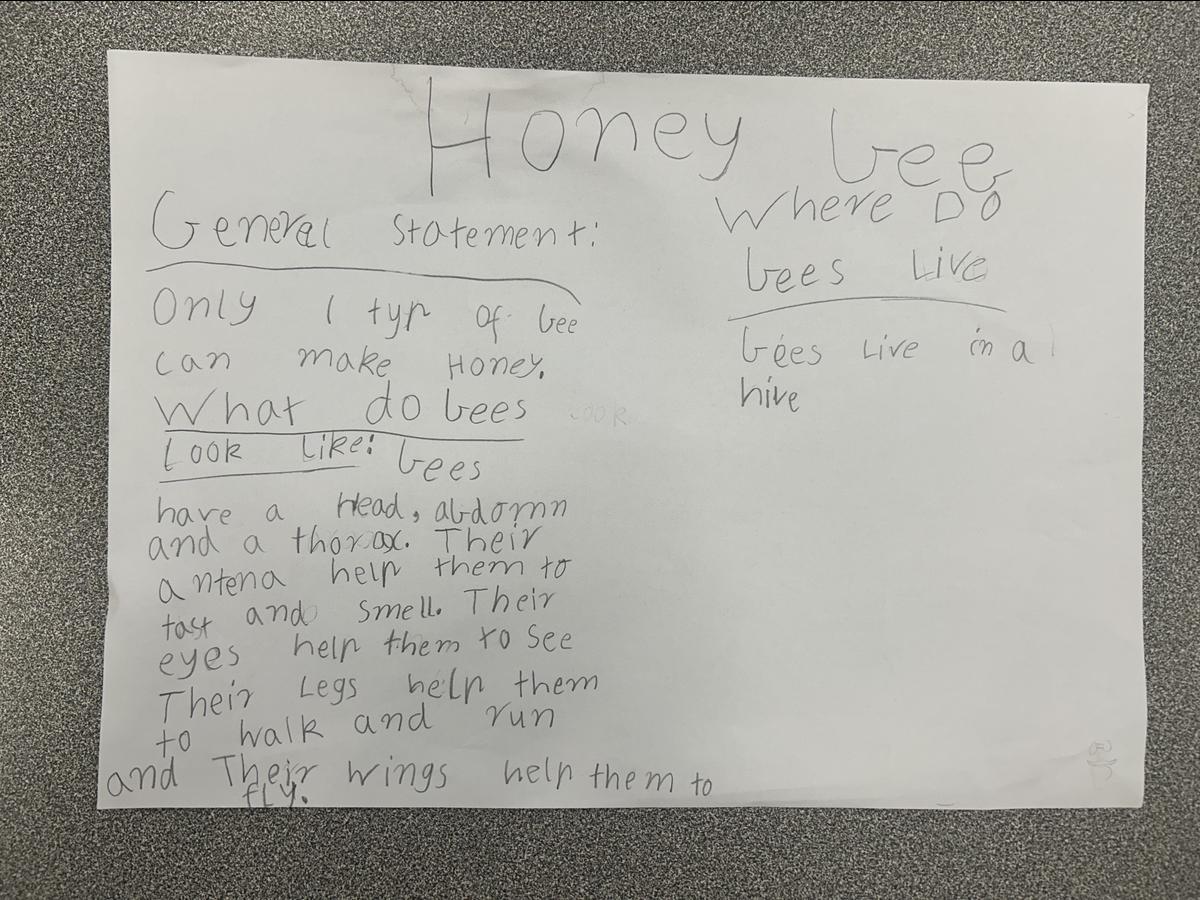 Honey bee
General statement:
Only 1 typ of bee
can make Honey.
What do bees
Look Like: bees
have a Head, abdomn
and a thorax. Their
antena help them to
tast and smell. Their
eyes help them to see
Their Legs help them
to walk and run
and Their wings help them to
fly.
Where Do
bees Live
bees Live in a
hive